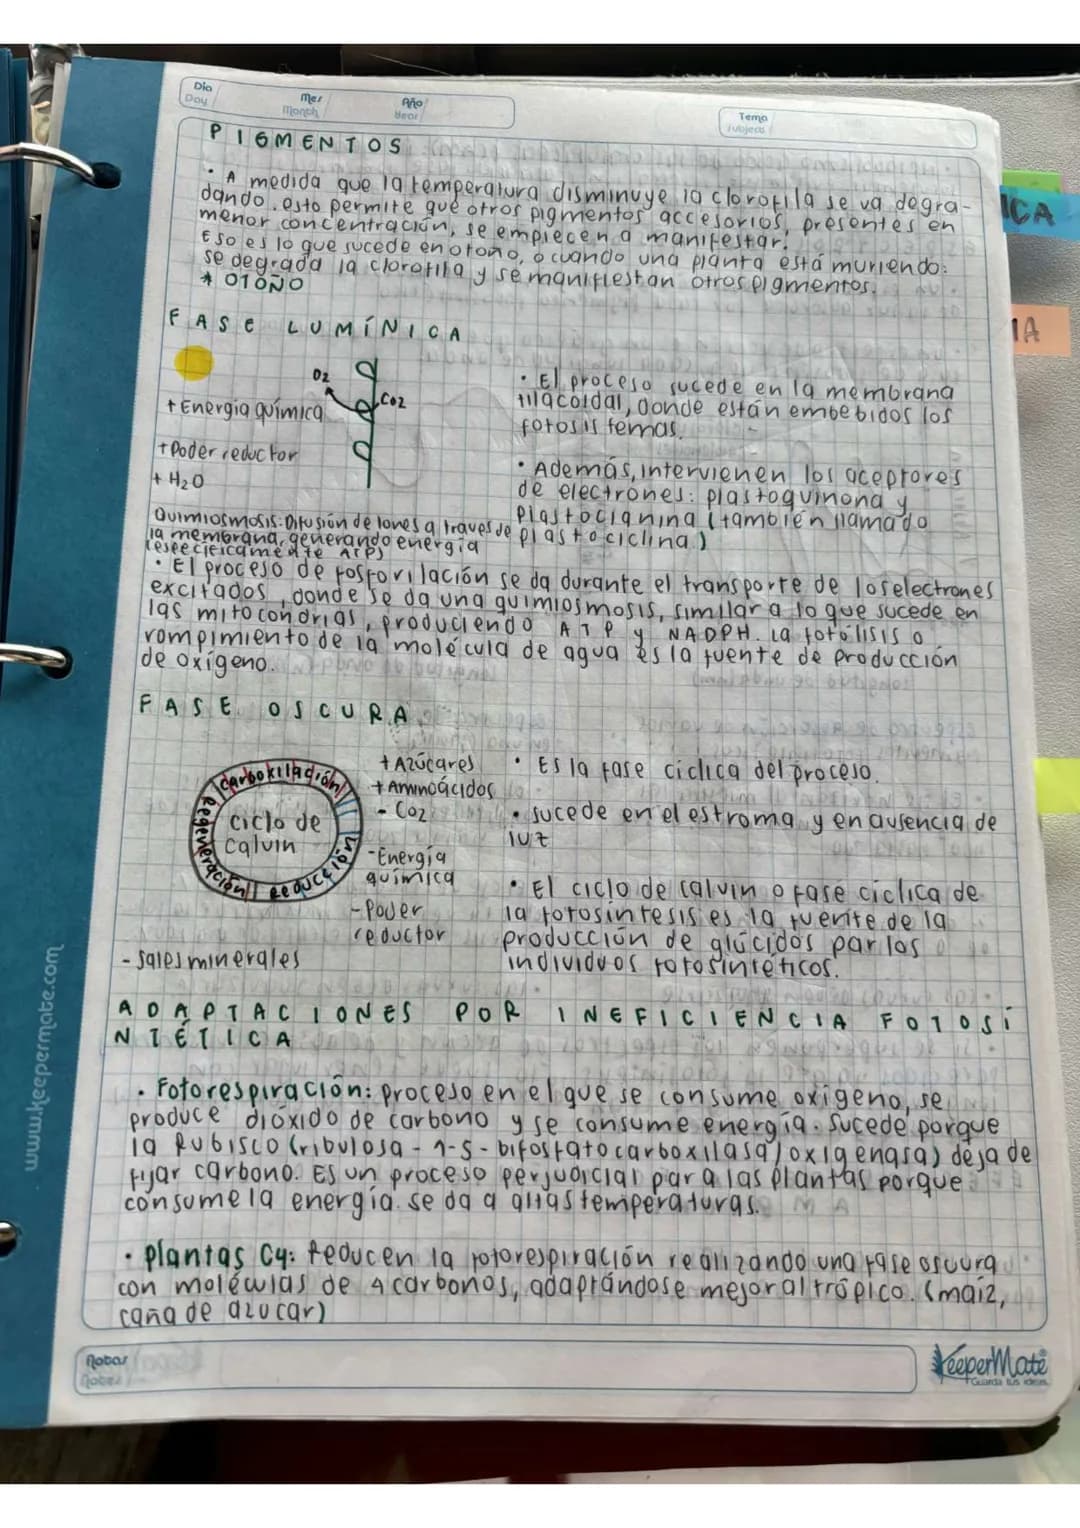 Día Mes Año Tema
Day Month Year Subject
PIGMENTOS
• A medida que la temperatura disminuye la clorofila se va degra-
dando. esto permite que otros pigmentos accesorios, presentes en
menor concentración, se empiecen a manifestar.
Eso es lo que sucede en otoño, o cuando una planta está muriendo:
se degrada la clorofila y se manifiestan otros pigmentos.
* OTOÑO
FASE LUMÍNICA
O2
CO2
+ Energía química
+ Poder reductor
+ H2O
• El proceso sucede en la membrana
tilacoidal, donde están embebidos los
fotosistemas.
• Además, intervienen los aceptores
de electrones: plastoquinona y
plastocianina (también llamado
plastociclina)
Quimiosmosis: Difusión de iones a través de
la membrana, generando energía
(específicamente ATP)
• El proceso de fosforilación se da durante el transporte de los electrones
excitados, donde se da una quimiosmosis, similar a lo que sucede en
las mitocondrias, produciendo ATP y NADPH. La fotólisis o
rompimiento de la molécula de agua es la fuente de producción
de oxígeno.
FASE OSCURA
carboxilación
Ciclo de
Calvin
Regeneración
Reducción
+ Azúcares
+ Aminoácidos
- CO2
- Energía
química
- Poder
reductor
- Sales minerales
• Es la fase cíclica del proceso.
• Sucede en el estroma y en ausencia de
luz
• El ciclo de calvin o fase cíclica de
la fotosíntesis es la fuente de la
producción de glúcidos par los
individuos fotosintéticos.
ADAPTACIONES POR INEFICIENCIA FOTOSÍ
NTÉTICA
• Fotorespiración: proceso en el que se consume oxígeno, se
produce dióxido de carbono y se consume energía. Sucede porque
la RUBISCO (ribulosa-1-5-bifosfato carboxilasa/oxigenasa) deja de
fijar carbono. Es un proceso perjudicial para las plantas porque
consume la energía. se da a altas temperaturas.
• Plantas C4: Reducen la fotorespiración realizando una fase oscura
con moléculas de 4 carbonos, adaptándose mejor al trópico. (maíz,
caña de azucar)
Notas
Notes
KeeperMate
Guarda tus ideas
www.keepermate.com
ICA
IA